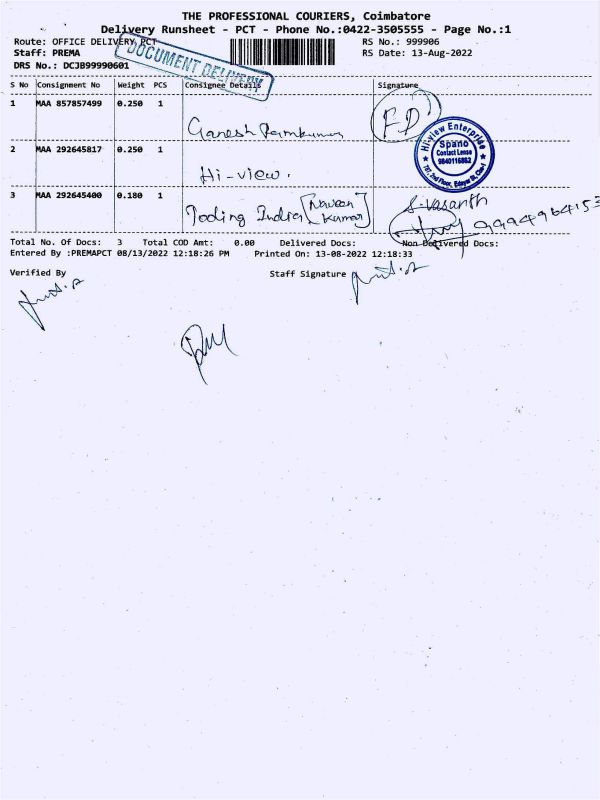 THE PROFESSIONAL COURIERS, Coimbatore
Delivery Runsheet - PCT - Phone No.:0422-3505555 - Page No.:1
Route: OFFICE DELIVERY PCT
RS No.: 999906
Staff: PREMA
RS Date: 13-Aug-2022
DRS No.: DCJB99990601
DOCUMENT DELIVERY
S No Consignment No Weight PCS Consignee Details Signature
1 MAA 857857499 0.250 1
Ganesh Ramkumar
FD
2 MAA 292645817 0.250 1
Hi-view.
Hi-view Enterprise
Spano
Contact Lense
9840116882
3 MAA 292645400 0.180 1
India [Naveen Kumar]
S-Vasanth
Total No. Of Docs: 3 Total COD Amt: 0.00 Delivered Docs: Non Delivered Docs:
Entered By :PREMAPCT 08/13/2022 12:18:26 PM Printed On: 13-08-2022 12:18:33
Verified By Staff Signature